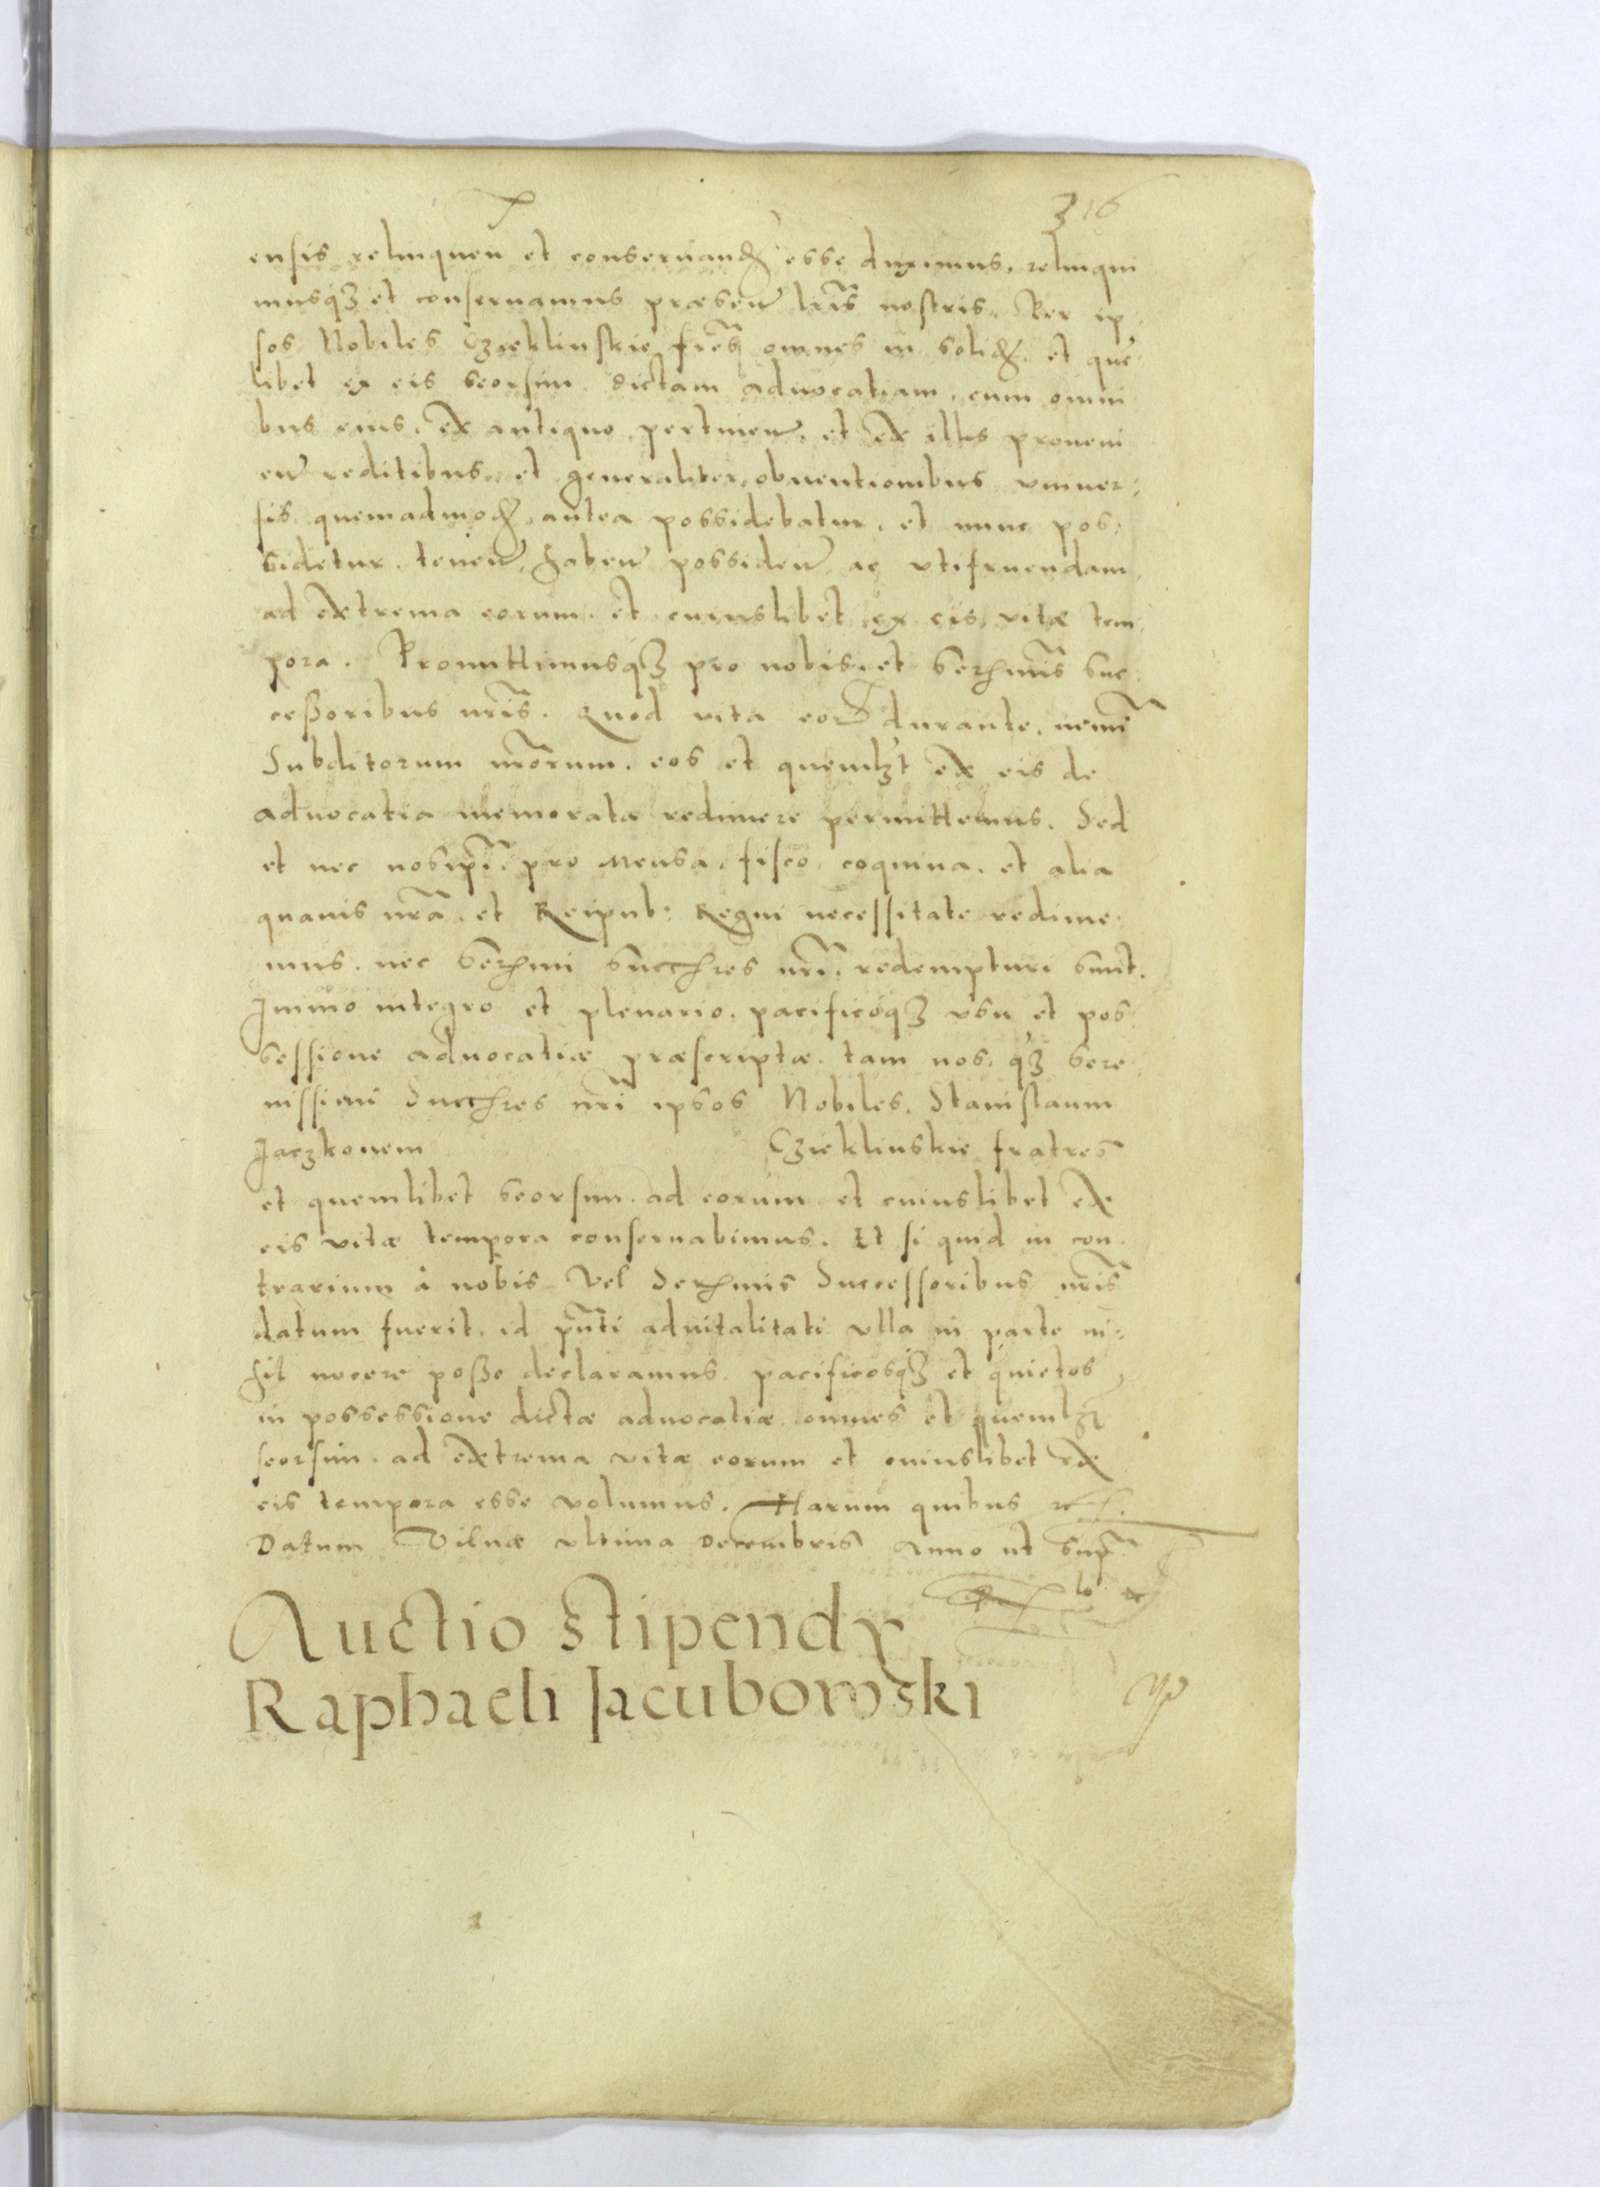 316
ensis relinquen et conseruand esse duximus, relinqui
musq3 et conseruamus præsen lris nostris. Per ip
sos Nobiles Czieklinskie fres omnes in solid. et que
libet ex eis seorsim dictam aduocatiam, cum omni
bus eius, ex antiquo pertinen, et ex illis proueni
en reditibus, et generaliter obuentionibus vniuer:
sis quemadmod antea possidebatur, et nunc pos:
sidetur, tenen, haben possiden ac vtifruendam,
ad extrema eorum, et cuiuslibet ex eis, vitæ tem
pora. Promittimusq3 pro nobis, et Sermis suc
cessoribus nris. Quod vita eor durante, nemi
Subditorum nrorum, eos et quemlz̃t ex eis de
aduocatia memorata redimere permittemus. Sed
et nec nosipi, pro mensa, fisco, coquina, et alia
quauis nra, et Reipub: Regni necessitate redime
mus, nec Sermi succres nri, redempturi sunt.
Immo integro et plenario, pacificoq3 vsu et pos
sessione aduocatiæ præscriptæ, tam nos, q3 Sere
nissimi Succres nri ipsos Nobiles, Stanislaum
Jaczkonem Czieklinskie fratres
et quemlibet seorsim ad eorum et cuiuslibet ex
eis vitæ tempora conseruabimus. Et si quid in con
trarium à nobis vel Sermis Successoribus nris
datum fuerit, id pñti aduitalitati vlla in parte ni:
hil nocere posse declaramus pacificosq3 et quietos
in possessione dictæ aduocatiæ omnes et quemlz̃
seorsim ad extrema vitæ eorum et cuiuslibet ex
eis tempora esse volumus. Harum quibus
Datum Vilnæ vltima Decembris Anno ut sup
Auctio stipendy
Raphaeli Jacubowski